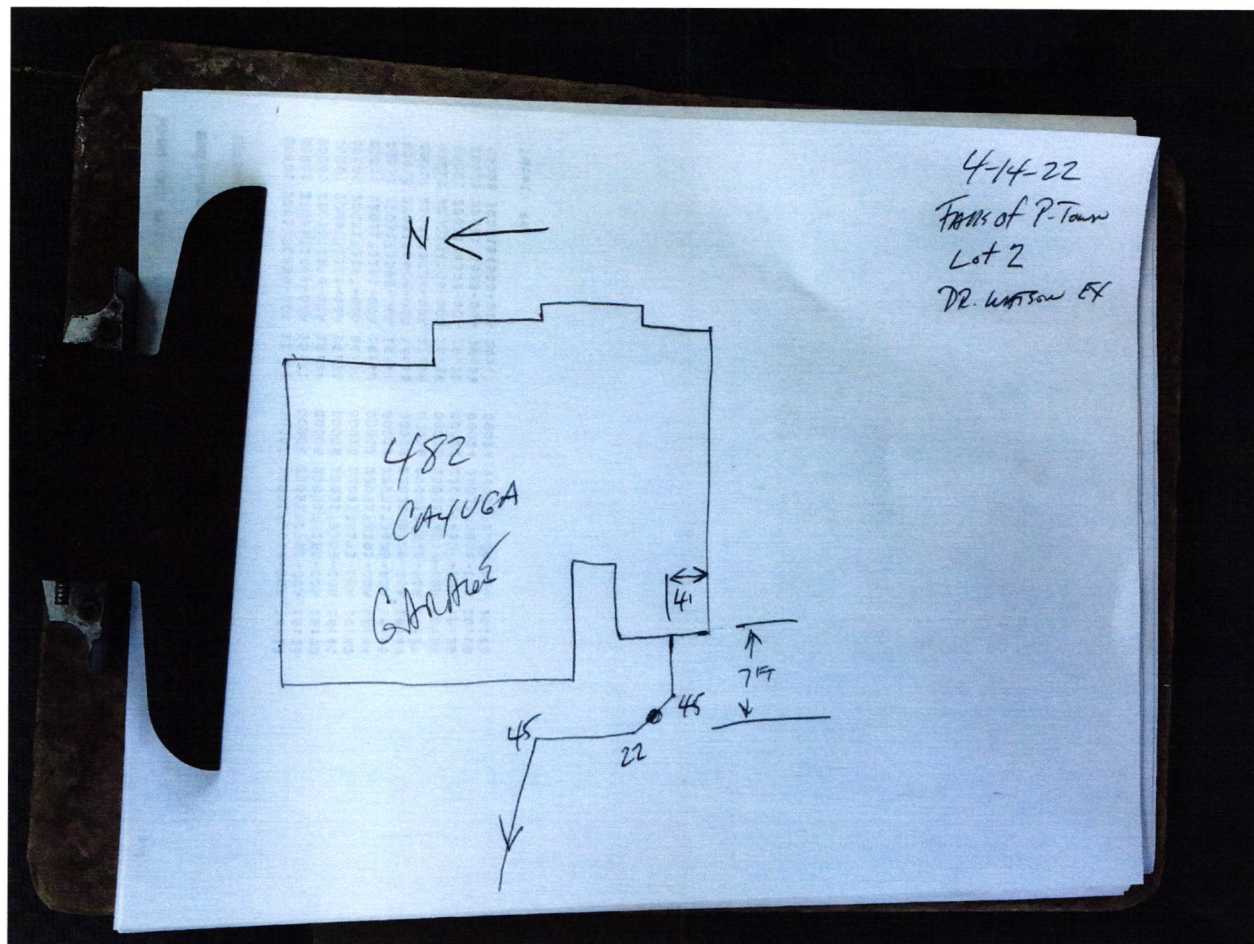 4-14-22
Falls of P-Town
Lot 2
DR. WATSON EX
N
482
CAYUGA
GARAGE
4'
7 FT
45
45
22